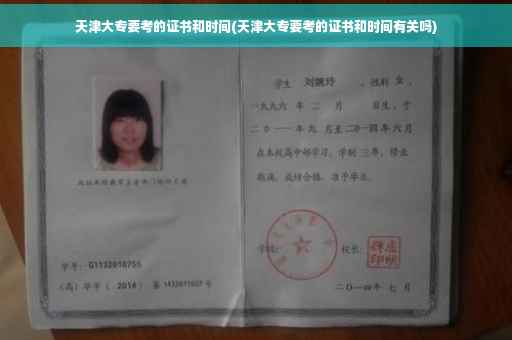 天津大专要考的证书和时间(天津大专要考的证书和时间有关吗)
学生 刘婉玲 ，性别 女 ，
一九九六 年 二 月 日生，于
二〇一一年九 月至二〇一四年六月
在本校高中部学习，学制 三年，修业
期满，成绩合格，准予毕业。
学校：
校长：
学号：G1132010755
（高）毕字（ 2014 ）第 1432011037 号
二〇一四年 七 月